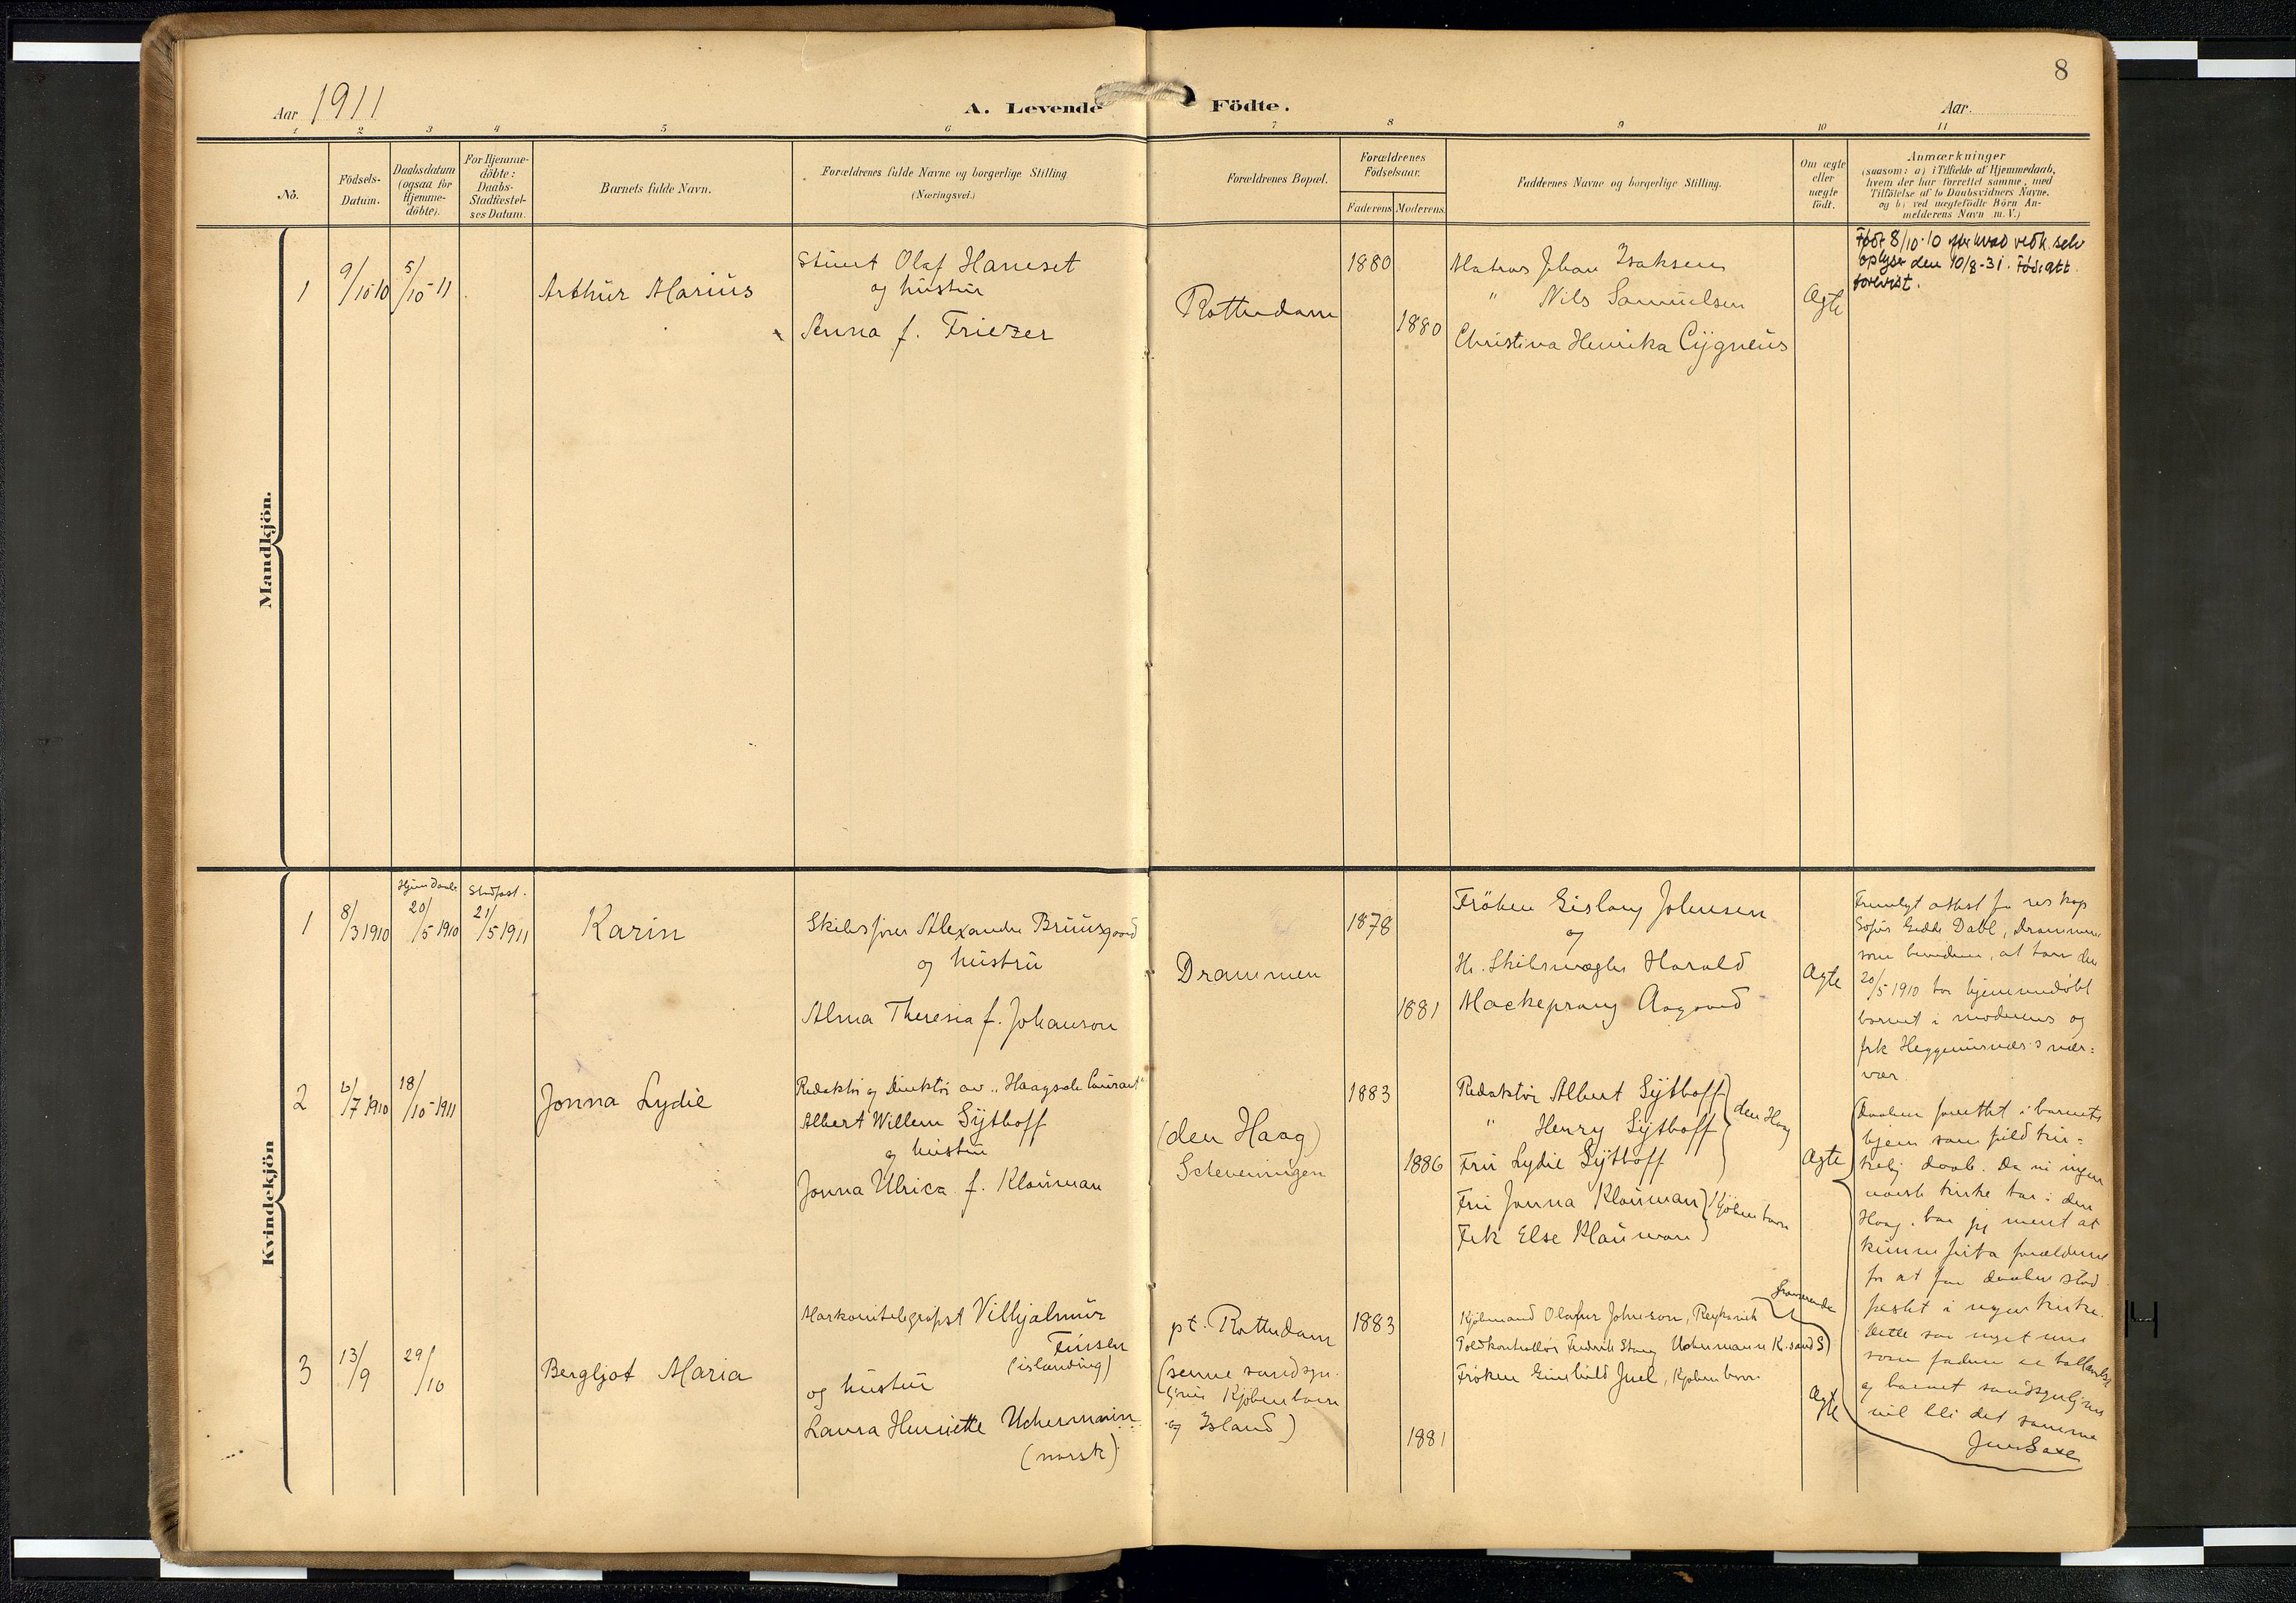 8
Aar 1911
A. Levende Födte.
Aar.
1 2 3 4 5 6 7 8 9 10 11
No.
Födsels-
Datum.
Daabsdatum
(ogsaa for
Hjemme-
döbte).
For Hjemme-
döbte:
Daabs-
Stadfæstel-
ses Datum.
Barnets fulde Navn.
Forældrenes fulde Navne og borgerlige Stilling
(Næringsvei.)
Forældrenes Bopæl.
Forældrenes
Födselsaar.
Faderens
Moderens
Faddernes Navne og borgerlige Stilling.
Om ægte
eller
uægte
födt.
Anmærkninger
(saasom: a) i Tilfælde af Hjemmedaab,
hvem der har forrettet samme, med
Tilföielse af to Daabsvidners Navne.
og b) ved uægtefödte Börn An-
melderens Navn m. V.)
Mandkjön.
1
9/10 10
5/10 - 11
Arthur Marius
Stuert Olaf Haneset
og hustru
Anna f. Friezer
Rotterdam
1880
1880
Matros Johan Isaksen
" Nils Samuelsen
Christina Henrika Cygneus
Ægte
Født 8/10-10 efter hvad vedk. selv
oplyser den 10/8-31. Føds.att.
forevist.
Kvindekjön
1
8/3 1910
Hjem daab
20/5 1910
Stadfæst.
21/5 1911
Karin
Skibsfører Alexander Bruusgaard
og hustru
Alma Theresia f. Johanson
Drammen
1878
1881
Fröken Gislaug Johnsen
og
Hr. Skibsmægler Harald
Mackeprang Aagaard
Ægte
Fremlagt attest fra res kap
Gedde Dahl, Drammen
som bevidner, at han den
20/5 1910 har hjemmedøbt
barnet i moderens og
frk Heggenusnæs's nær-
vær
2
6/7 1910
18/10 - 1911
Jonna Lydie
Redaktør og Direktør av "Haagsche Courant"
Albert Willem Sijthoff
og hustru
Jonna Ulrica f. Klauman
(den Haag)
Scheveningen
1883
1886
Redaktör Albert Sijthoff
" Henry Sijthoff
Fru Lydie Sijthoff
den Haag
Fru Jonna Klauman
Frk Else Klauman
Kjöbenhavn
Ægte
Daaben forrettet i barnets
hjem som fuld kir-
kelig daab. Da vi ingen
norsk kirke har i den
Haag, har jeg ment at
kunne frita forældrene
for at faa daaben stad
fæstet i nogen kirke.
Dette saa meget mere
som faderen er hollandsk
og barnet sandsynligvis
vil bli det samme
3
13/9
29/10
Bergljot Maria
Markonitelegrafist Vilhjalmur
Finsen
(islænding)
og hustru
Laura Henriette Uchermann
(norsk)
pt. Rotterdam
(senere sandsyn-
ligvis Kjöbenhavn
og Island)
1883
1881
Kjöbmand Olafur Johnson, Reykavik
Toldkontrollör Fredrik Stang Uchermann K.sand S)
Fröken Gunhild Juel, Kjöbenhavn
fraværende
Ægte